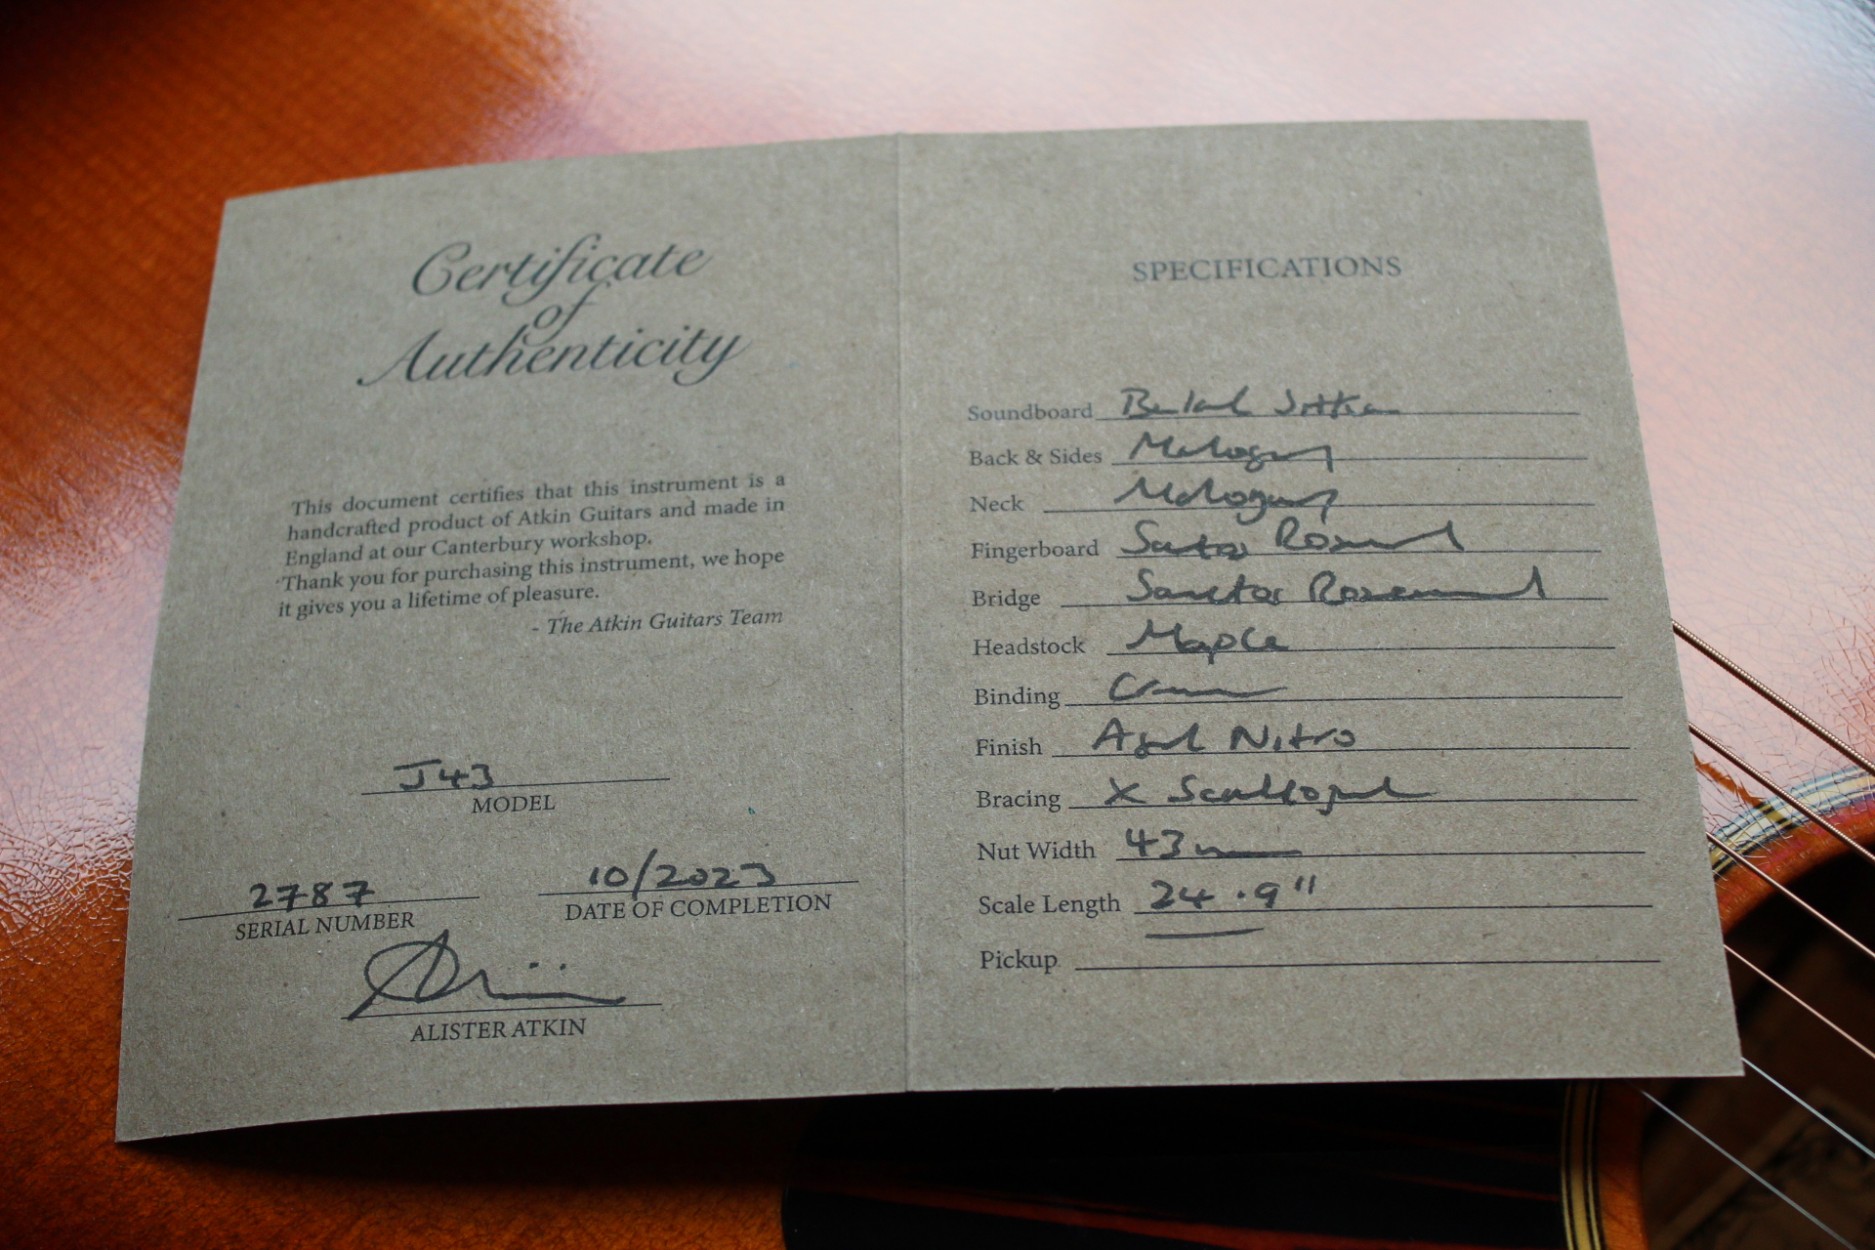 Certificate
of
Authenticity
This document certifies that this instrument is a
handcrafted product of Atkin Guitars and made in
England at our Canterbury workshop.
Thank you for purchasing this instrument, we hope
it gives you a lifetime of pleasure.
- The Atkin Guitars Team
J43
MODEL
2787
SERIAL NUMBER
10/2023
DATE OF COMPLETION
ALISTER ATKIN
SPECIFICATIONS
Soundboard Baked Sitka
Back & Sides Mahogany
Neck Mahogany
Fingerboard Santos Rosewood
Bridge Santos Rosewood
Headstock Maple
Binding Cream
Finish Aged Nitro
Bracing X Scalloped
Nut Width 43mm
Scale Length 24.9"
Pickup